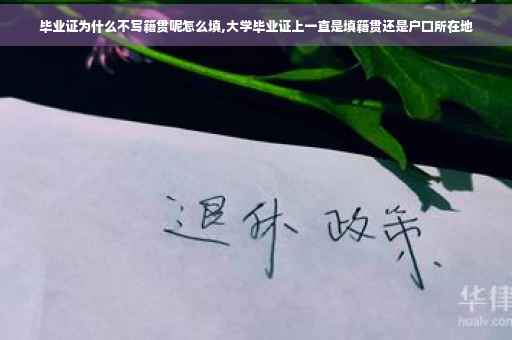 毕业证为什么不写籍贯呢怎么填,大学毕业证上一直是填籍贯还是户口所在地
退休 政策
华律
hualv.com